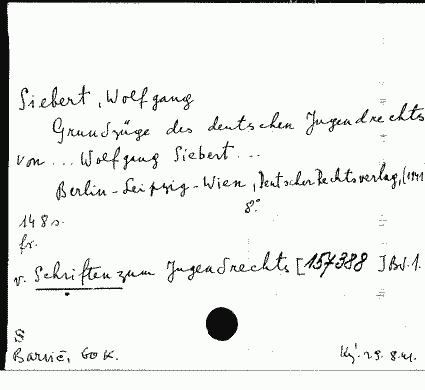 Siebert, Wolfgang
Grundzüge des deutschen Jugendrechts
von ... Wolfgang Siebert ...
Berlin-Leipzig-Wien, Deutscher Rechtsverlag, (1941
8°
148 s.
fr.
v. Schriften zum Jugendrechts [157388] Bd. 1.
S
Barvič, Go K.
29.8.41.